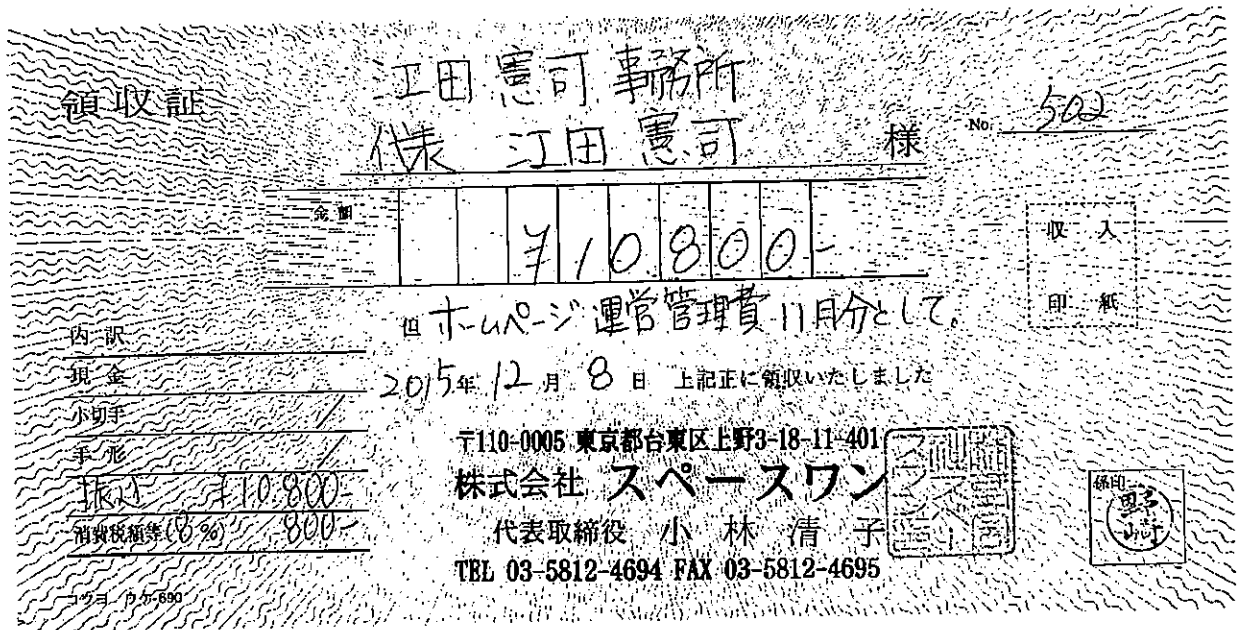 領収証
江田憲司事務所
代表 江田憲司 様
No. 502
金額
¥10800-
収入
印紙
但 ホームページ運営管理費11月分として。
2015年12月8日 上記正に領収いたしました
内訳
現金
小切手
手形
振込 ¥10,800-
消費税額等(8%) 800-
〒110-0005 東京都台東区上野3-18-11-401
株式会社 スペースワン
代表取締役 小林清子
TEL 03-5812-4694 FAX 03-5812-4695
係印
野崎
コクヨ ウケ-690